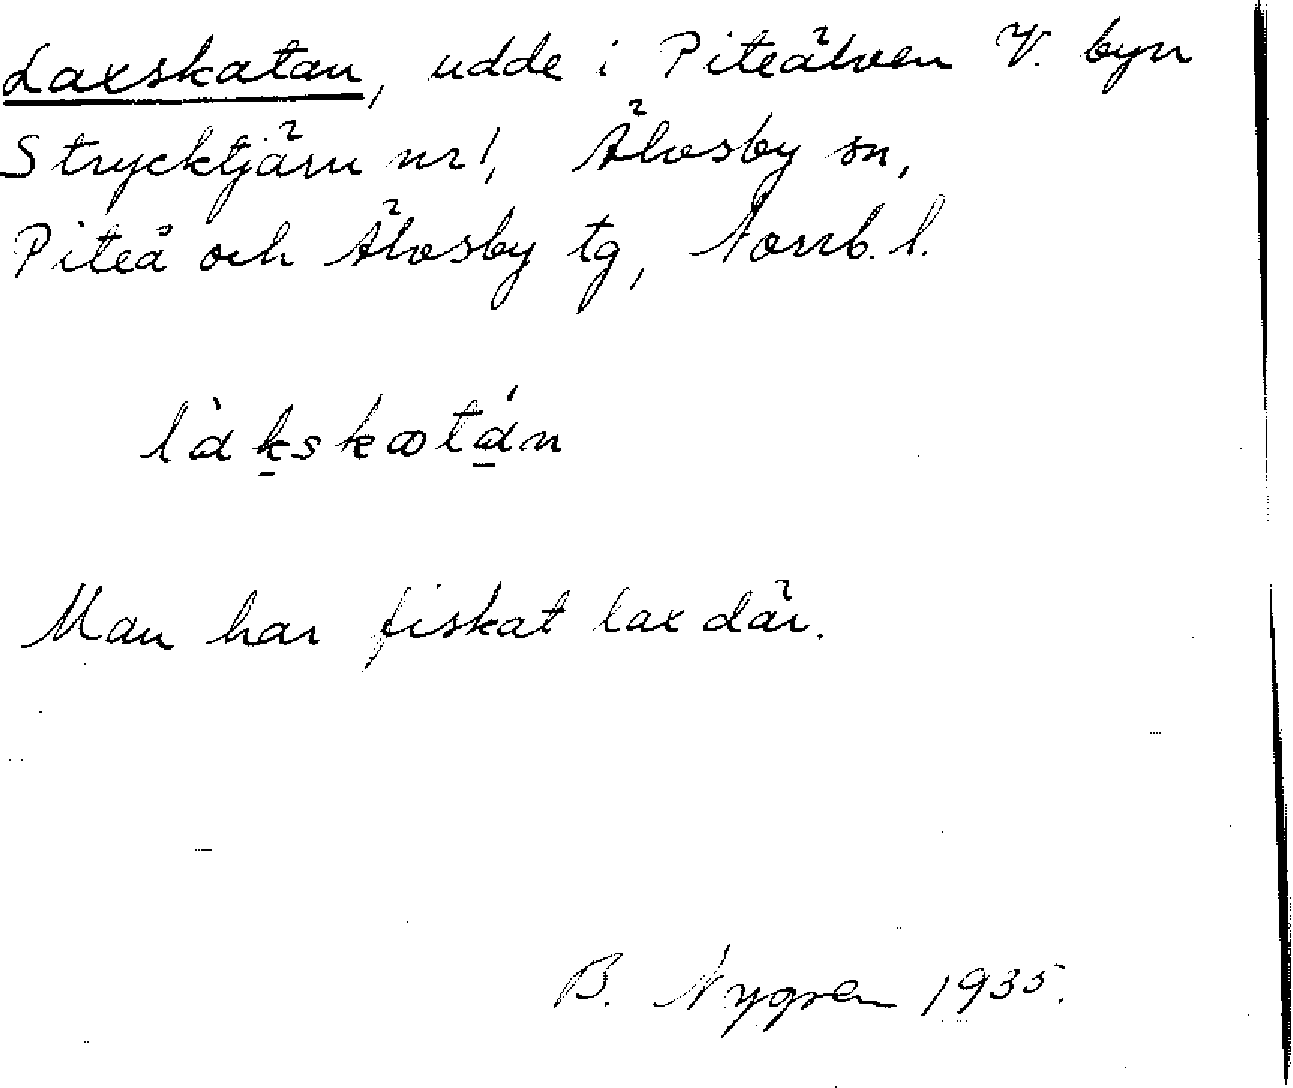 Laxskatan, udde i Piteälven V. byn
Strycktjärn nr 1, Älvsby sn,
Piteå och Älvsby tg, Norrb. l.
Man har fiskat lax där.
B. Nygren 1935.